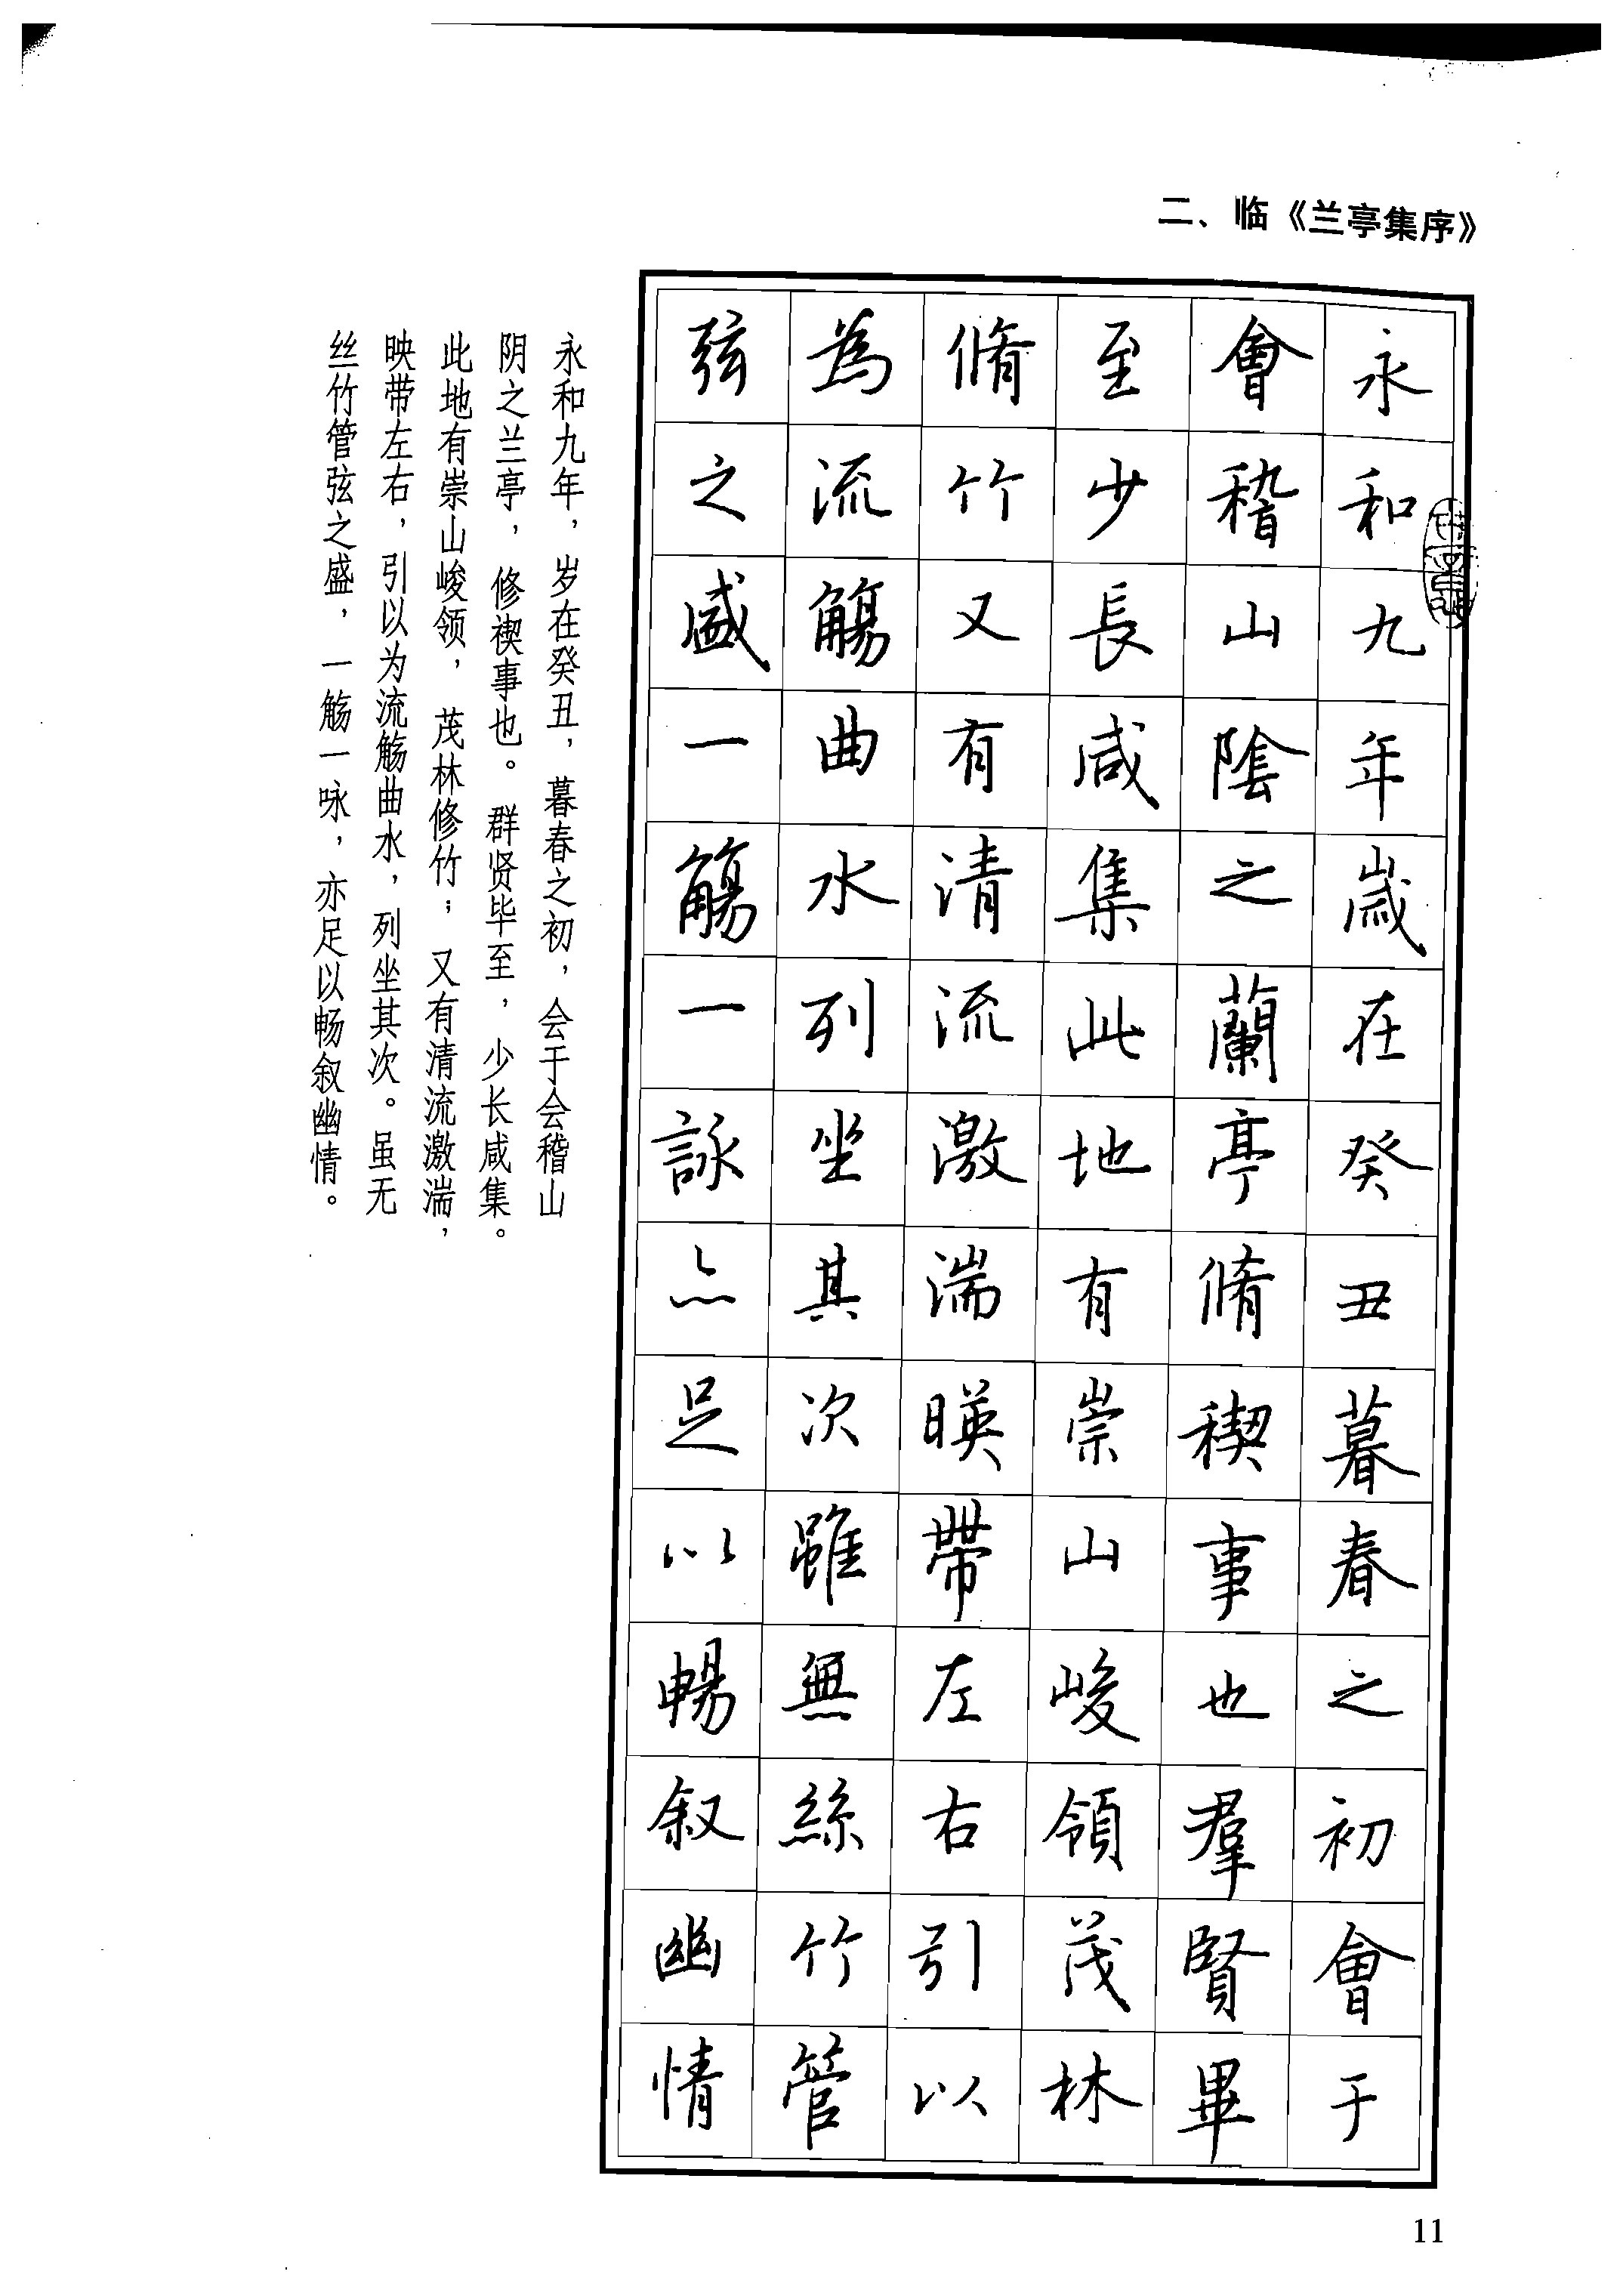 二、临《兰亭集序》
永和九年歲在癸丑暮春之初會于
會稽山陰之蘭亭脩稧事也羣賢畢
至少長咸集此地有崇山峻領茂林
脩竹又有清流激湍暎帶左右引以
為流觴曲水列坐其次雖無絲竹管
弦之盛一觴一詠亦足以暢叙幽情
永和九年，岁在癸丑，暮春之初，会于会稽山
阴之兰亭，修禊事也。群贤毕至，少长咸集。
此地有崇山峻领，茂林修竹；又有清流激湍，
映带左右，引以为流觞曲水，列坐其次。虽无
丝竹管弦之盛，一觞一咏，亦足以畅叙幽情。
11